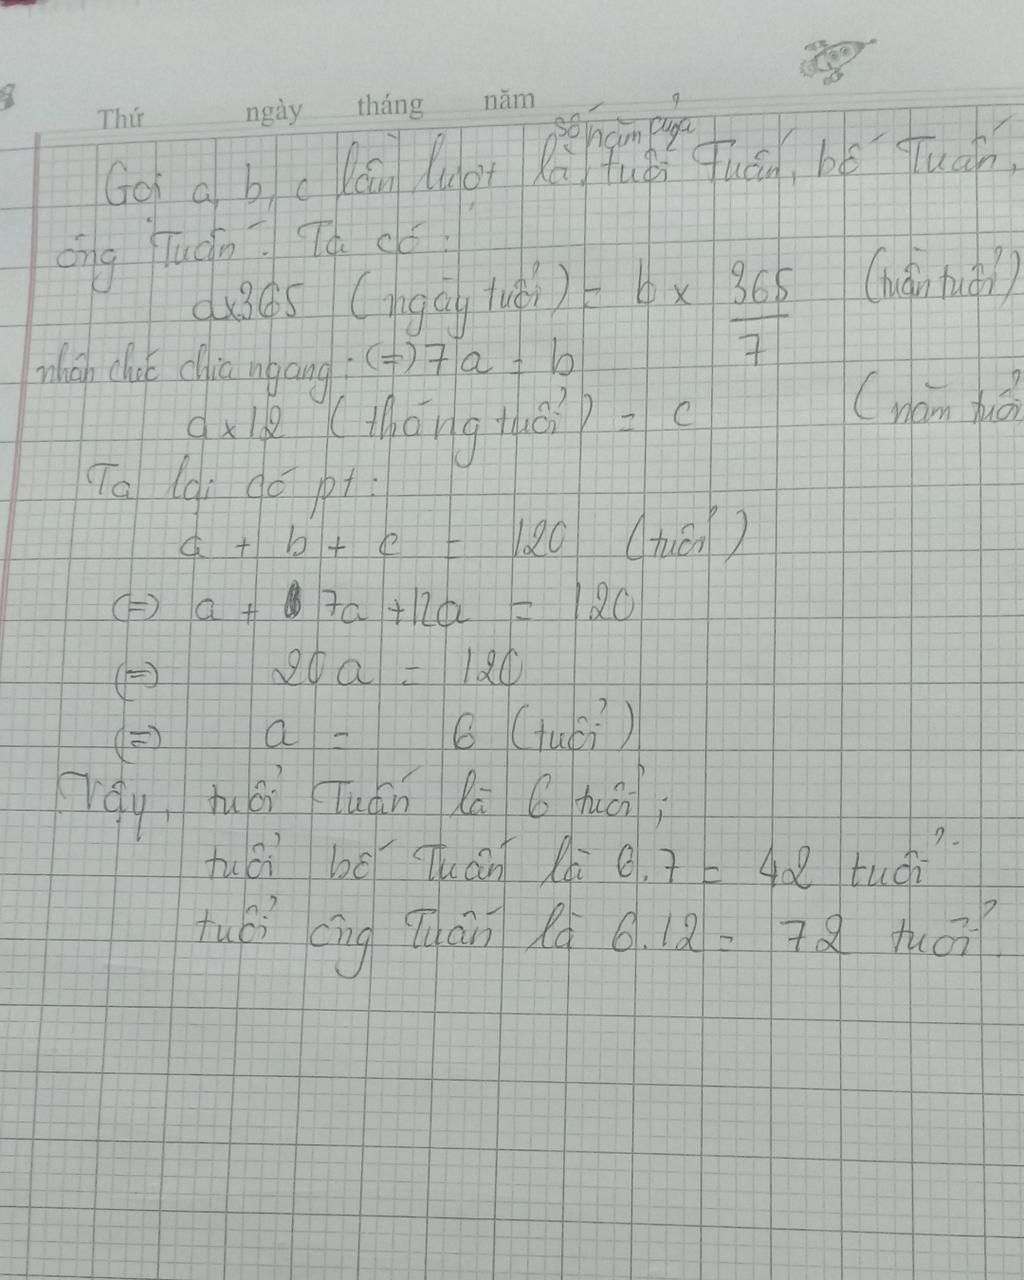 Thứ ngày tháng năm
số năm của
Gọi a, b, c lần lượt là tuổi Tuấn, bố Tuấn,
ông Tuấn. Ta có:
a x 365 (ngày tuổi) = b x 365/7 (tuần tuổi)
nhân chéo chia ngang: (=) 7a = b
a x 12 (tháng tuổi) = c (năm tuổi
Ta lại có pt:
a + b + c = 120 (tuổi)
(=) a + 7a + 12a = 120
(=) 20a = 120
(=) a = 6 (tuổi)
Vậy, tuổi Tuấn là 6 tuổi;
tuổi bố Tuấn là 6.7 = 42 tuổi.
tuổi ông Tuấn là 6.12 = 72 tuổi